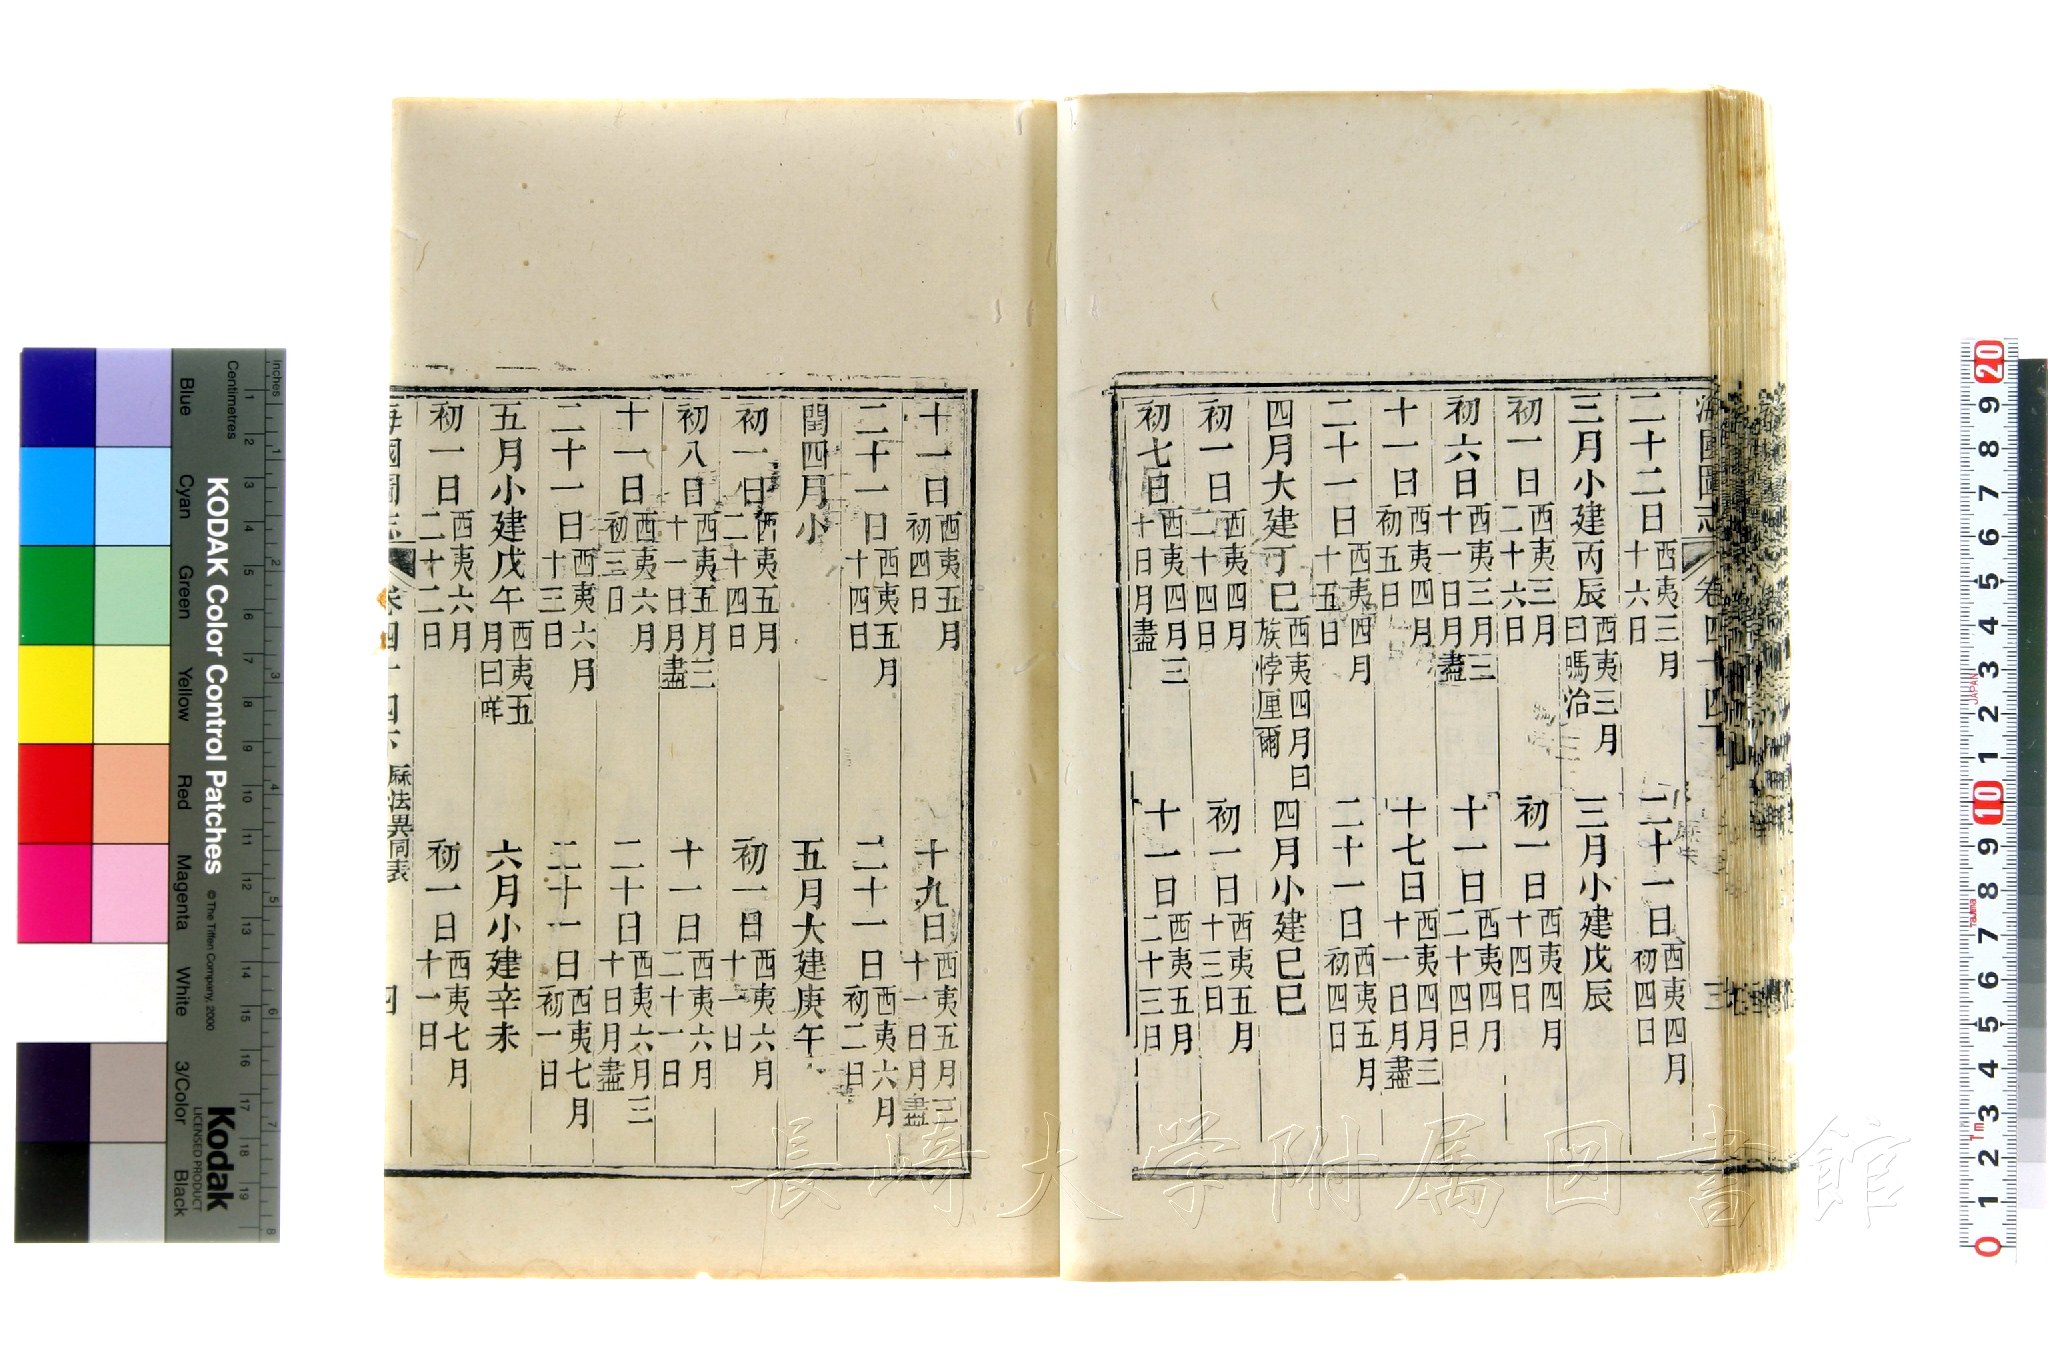 海國圖志 卷四十四下 三
二十二日西夷三月十六日 二十一日西夷四月初四日
三月小建丙辰西夷三月曰瑪治 三月小建戊辰
初一日西夷三月二十六日 初一日西夷四月十四日
初六日西夷三月三十一日月盡 十一日西夷四月二十四日
十一日西夷四月初五日 十七日西夷四月三十一日月盡
二十一日西夷四月十五日 二十一日西夷五月初四日
四月大建丁巳西夷四月曰族悖厘爾 四月小建巳巳
初一日西夷四月二十四日 初一日西夷五月十三日
初七日西夷四月三十日月盡 十一日西夷五月二十三日
十一日西夷五月初四日 十九日西夷五月三十一日月盡
二十一日西夷五月十四日 二十一日西夷六月初二日
閏四月小 五月大建庚午
初一日西夷五月二十四日 初一日西夷六月十一日
初八日西夷五月三十一日月盡 十一日西夷六月二十一日
十一日西夷六月初三日 二十日西夷六月三十日月盡
二十一日西夷六月十三日 二十一日西夷七月初一日
五月小建戊午西夷五月曰咩 六月小建辛未
初一日西夷六月二十二日 初一日西夷七月十一日
海國圖志 卷四十四下 厤法異同表 四
長崎大学附属図書館
Inches
Centimetres
KODAK Color Control Patches
© The Tiffen Company, 2000
Kodak
LICENSED PRODUCT
Blue
Cyan
Green
Yellow
Red
Magenta
White
3/Color
Black
1 2 3 4 5 6 7 8 9 10 11 12 13 14 15 16 17 18 19
1 2 3 4 5 6 7 8
20 9 8 7 6 5 4 3 2 1 10 9 8 7 6 5 4 3 2 1 0
JAPAN